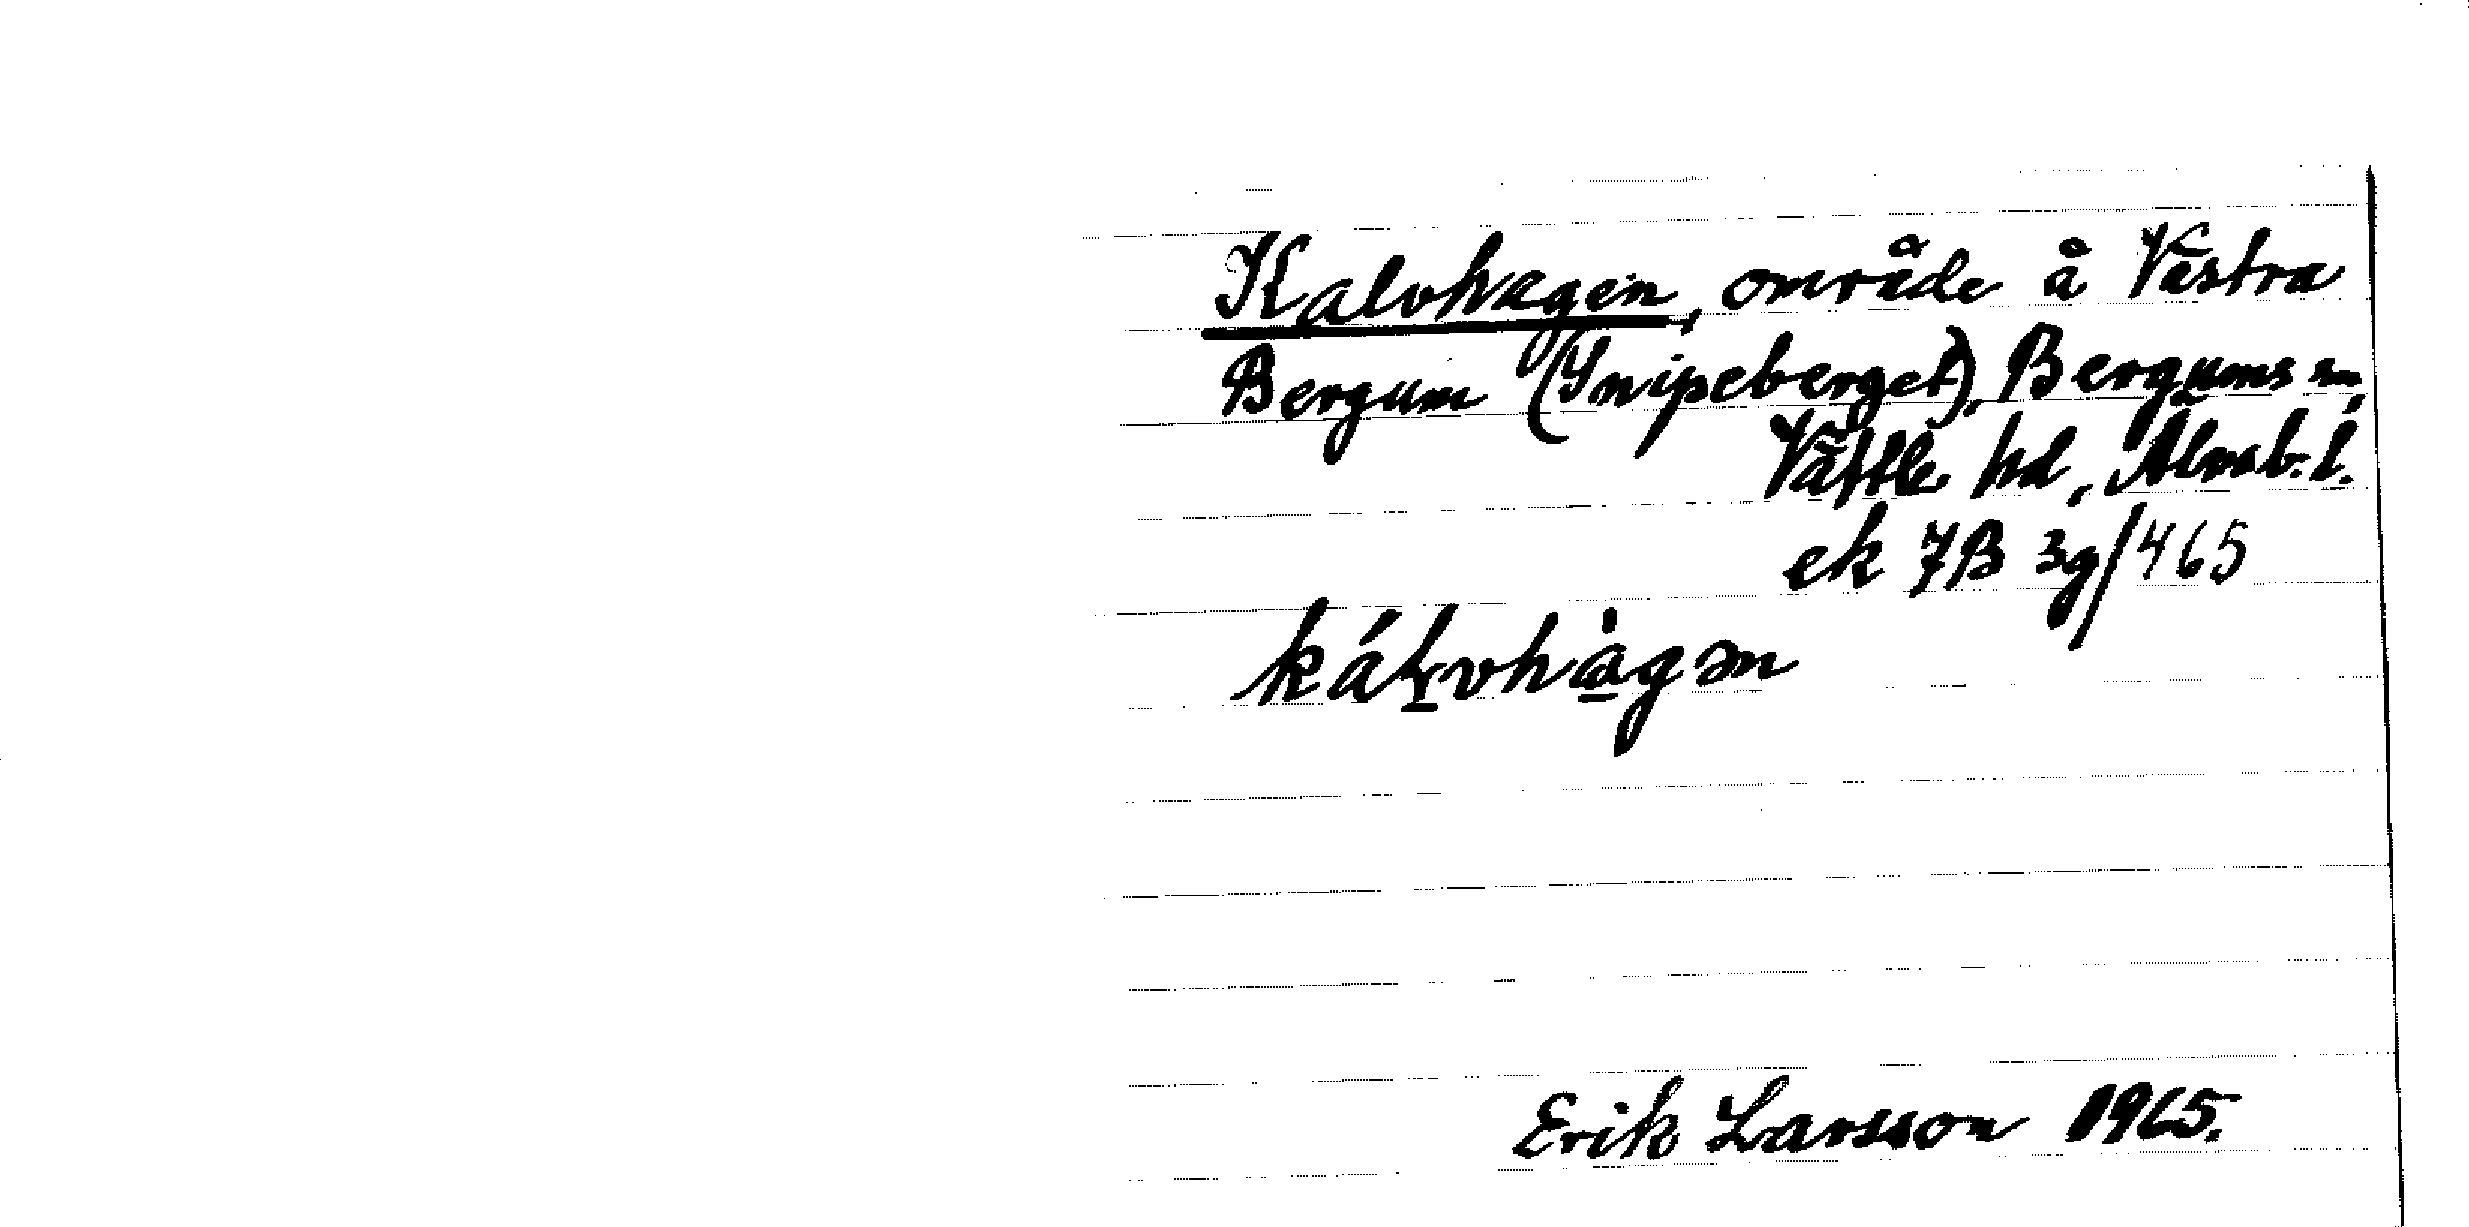 Kalvhagen, område å Västra
Bergum (Snipeberget), Bergums sn,
Vättle hd, Älvsb. l.
ek 7B 3g/465
káḻvhàgən
Erik Larsson 1965.